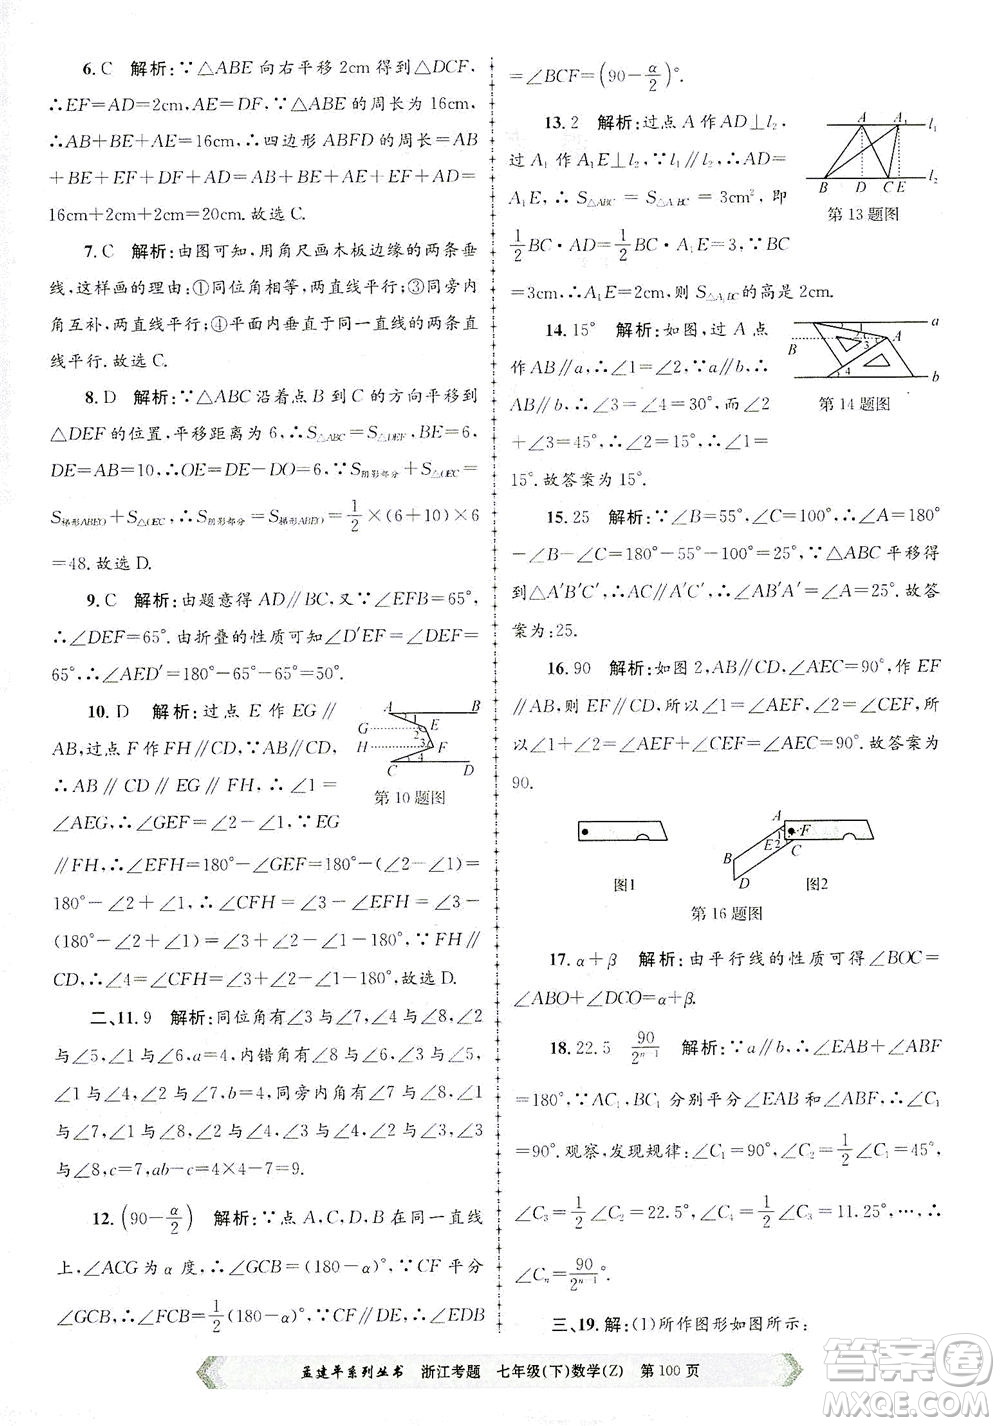 6. C　解析:∵△ABE向右平移2cm得到△DCF,
∴EF=AD=2cm,AE=DF,∵△ABE的周长为16cm,
∴AB+BE+AE=16cm,∴四边形ABFD的周长=AB
+BE+EF+DF+AD=AB+BE+AE+EF+AD=
16cm+2cm+2cm=20cm.故选C.
7. C　解析:由图可知,用角尺画木板边缘的两条垂
线,这样画的理由:①同位角相等,两直线平行;③同旁内
角互补,两直线平行;④平面内垂直于同一直线的两条直
线平行.故选C.
8. D　解析:∵△ABC沿着点B到C的方向平移到
△DEF的位置,平移距离为6,∴S△ABC=S△DEF,BE=6,
DE=AB=10,∴OE=DE-DO=6,∵S阴影部分+S△OEC=
S梯形ABEO+S△OEC,∴S阴影部分=S梯形ABEO=1/2×(6+10)×6
=48.故选D.
9. C　解析:由题意得AD∥BC,又∵∠EFB=65°,
∴∠DEF=65°.由折叠的性质可知∠D′EF=∠DEF=
65°,∴∠AED′=180°-65°-65°=50°.
10. D　解析:过点E作EG∥
AB,过点F作FH∥CD,∵AB∥CD,
∴AB∥CD∥EG∥FH,∴∠1=
∠AEG,∴∠GEF=∠2-∠1.∵EG
A B G 1 2 E H 3 F 4 C D
第10题图
∥FH,∴∠EFH=180°-∠GEF=180°-(∠2-∠1)=
180°-∠2+∠1,∴∠CFH=∠3-∠EFH=∠3-
(180°-∠2+∠1)=∠3+∠2-180°-∠1.∵FH∥
CD,∴∠4=∠CFH=∠3+∠2-∠1-180°,故选D.
二、11. 9　解析:同位角有∠3与∠7,∠4与∠6,∠2
与∠5,∠1与∠6,a=4,内错角有∠1与∠4,∠3与∠5,∠2
与∠6,∠4与∠7,b=4,同旁内角有∠1与∠7,∠4与∠5,
∠3与∠8,c=7,∴a+b-c=4+4-7=9.
12. (90-α/2)　解析:∵点A,C,D,B在同一直线
上,∠ACG为α度,∴∠GCB=(180-α)°.∵CF平分
∠GCB,∴∠FCB=1/2(180-α)°.∵CF∥DE,∴∠EDB
=∠BCF=(90-α/2)°.
13. 2　解析:过点A作AD⊥l₂,
过A₁作A₁E⊥l₂.∵l₁∥l₂,∴AD=
A₁E,∴S△ABC=S△A₁BC=3cm²,即
1/2BC·AD=1/2BC·A₁E=3,∵BC=
A A₁ l₁ B D C E l₂
第13题图
3cm,∴A₁E=2,则S△A₁BC的高是2cm.
14. 15°　解析:如图,过A点
作AB∥a,∴∠1=∠2,∵a∥b,
∴AB∥b,∴∠3=∠4=30°,而∠2
+∠3=45°,∴∠2=15°,∴∠1=
a 1 2 A B 3 4 b
第14题图
15°.故答案为15°.
15. 25　解析:∵∠B=55°,∠C=100°,∴∠A=180°
-∠B-∠C=180°-55°-100°=25°.∵△ABC平移得
到△A′B′C′,∴AB∥A′B′,∴∠AB′A′=∠A=25°.故答
案为:25.
16. 90　解析:如图2,AB∥CD,∠AEC=90°,作EF
∥AB,则EF∥CD,所以∠1=∠AEF,∠2=∠CEF,所
以∠1+∠2=∠AEF+∠CEF=∠AEC=90°.故答案为
90.
图1
A 1 F E 2 C B D
图2
第16题图
17. α+β　解析:由平行线的性质可得∠BOC=
∠ABO+∠DCO=α+β.
18. 22.5　90/2ⁿ⁻¹　解析:∵a∥b,∴∠EAB+∠ABF
=180°,∵AC₁,BC₁分别平分∠EAB和∠ABF,∴∠C₁
=90°.观察,发现规律:∠C₁=90°,∠C₂=1/2∠C₁=45°,
∠C₃=1/2∠C₂=22.5°,∠C₄=1/2∠C₃=11.25°,…,∴
∠Cₙ=90/2ⁿ⁻¹.
三、19. 解:(1)所作图形如图所示:
孟建平系列丛书　浙江考题　七年级(下)数学(Z)　第100页
答案圈
MXQE.COM